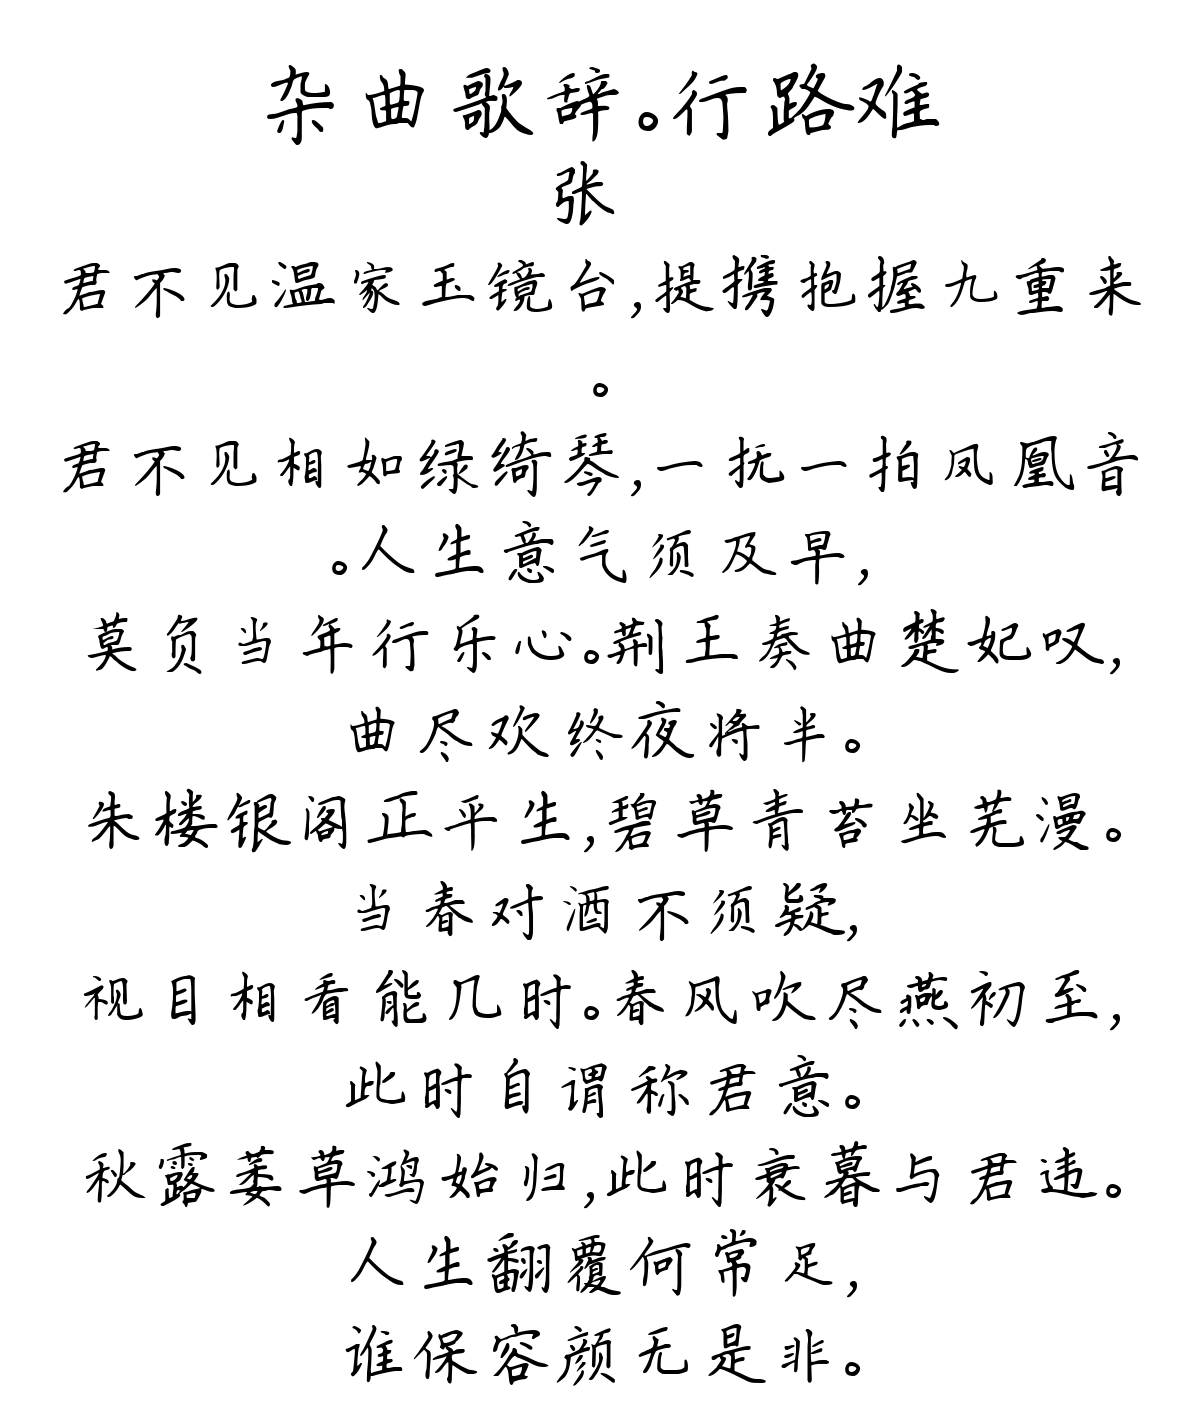 杂曲歌辞。行路难
张
君不见温家玉镜台,提携抱握九重来
。
君不见相如绿绮琴,一抚一拍凤凰音
。人生意气须及早,
莫负当年行乐心。荆王奏曲楚妃叹,
曲尽欢终夜将半。
朱楼银阁正平生,碧草青苔坐芜漫。
当春对酒不须疑,
视目相看能几时。春风吹尽燕初至,
此时自谓称君意。
秋露萎草鸿始归,此时衰暮与君违。
人生翻覆何常足,
谁保容颜无是非。